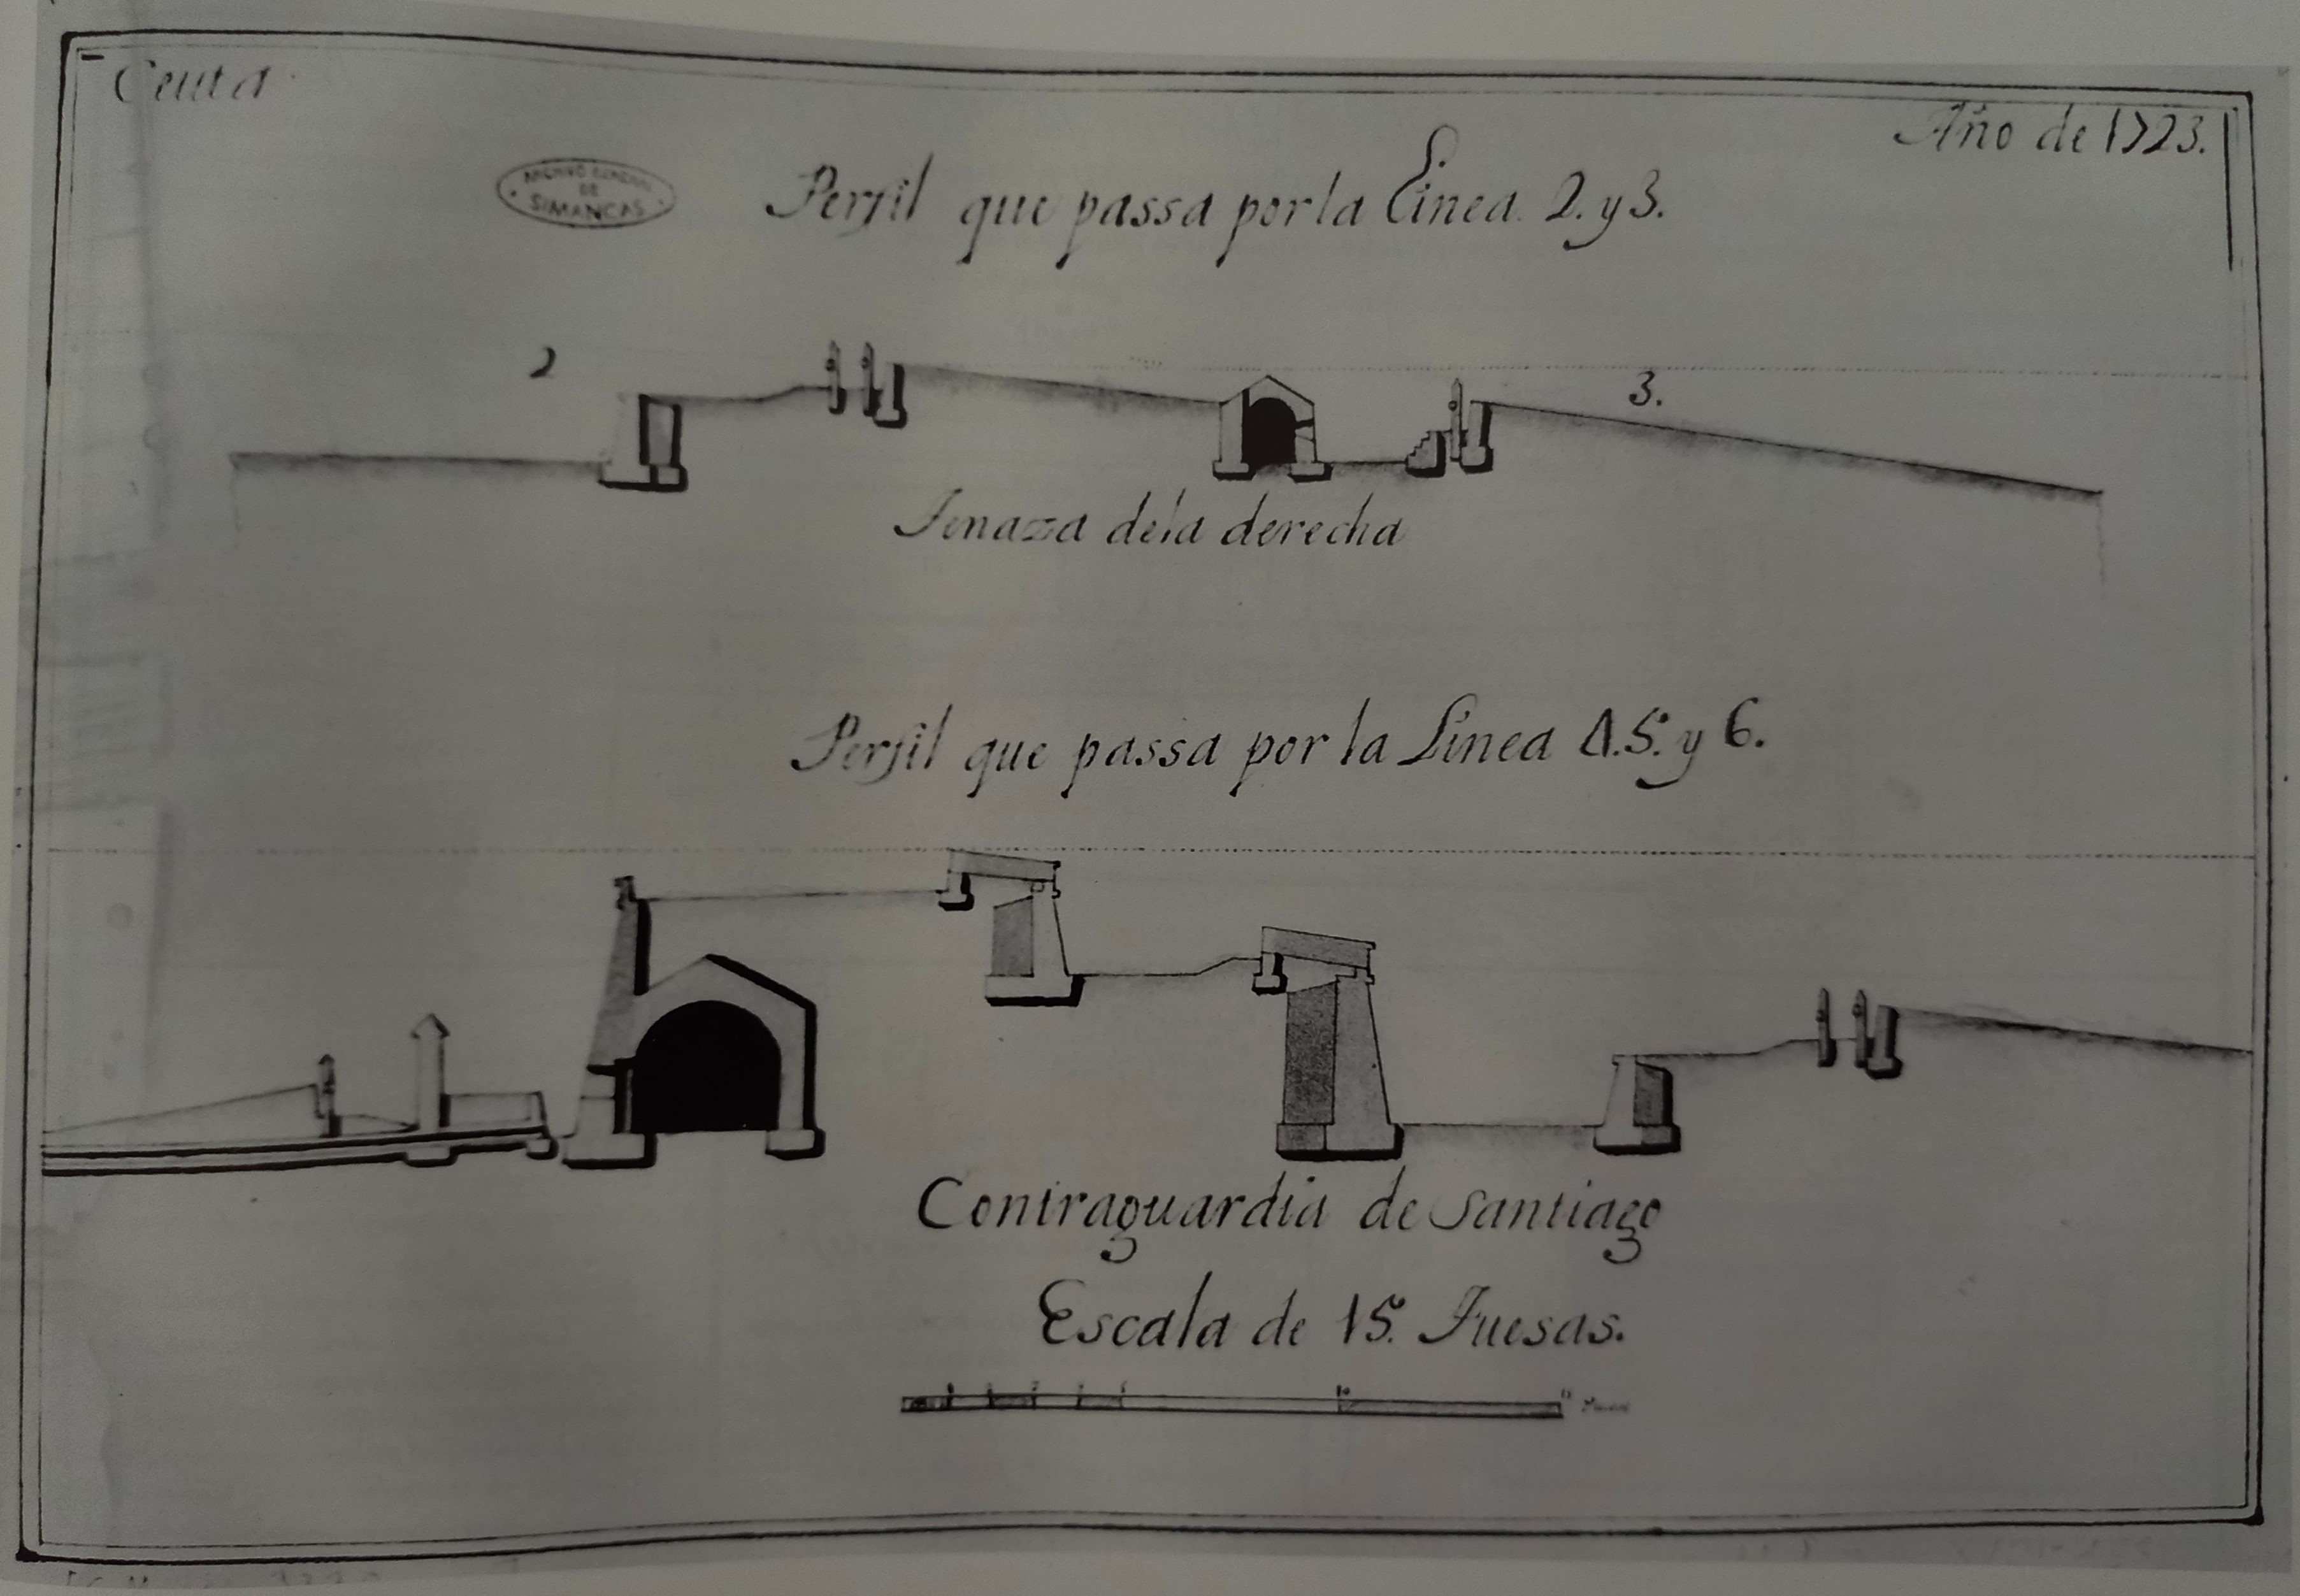 Ceuta
Año de 1723.
ARCHIVO GENERAL
DE
SIMANCAS
Perfil que passa por la Linea. 2. y 3.
2
3.
Tenaza dela derecha
Perfil que passa por la Linea 4. 5. y 6.
Contraguardia de Santiago
Escala de 15. Tuesas.
10